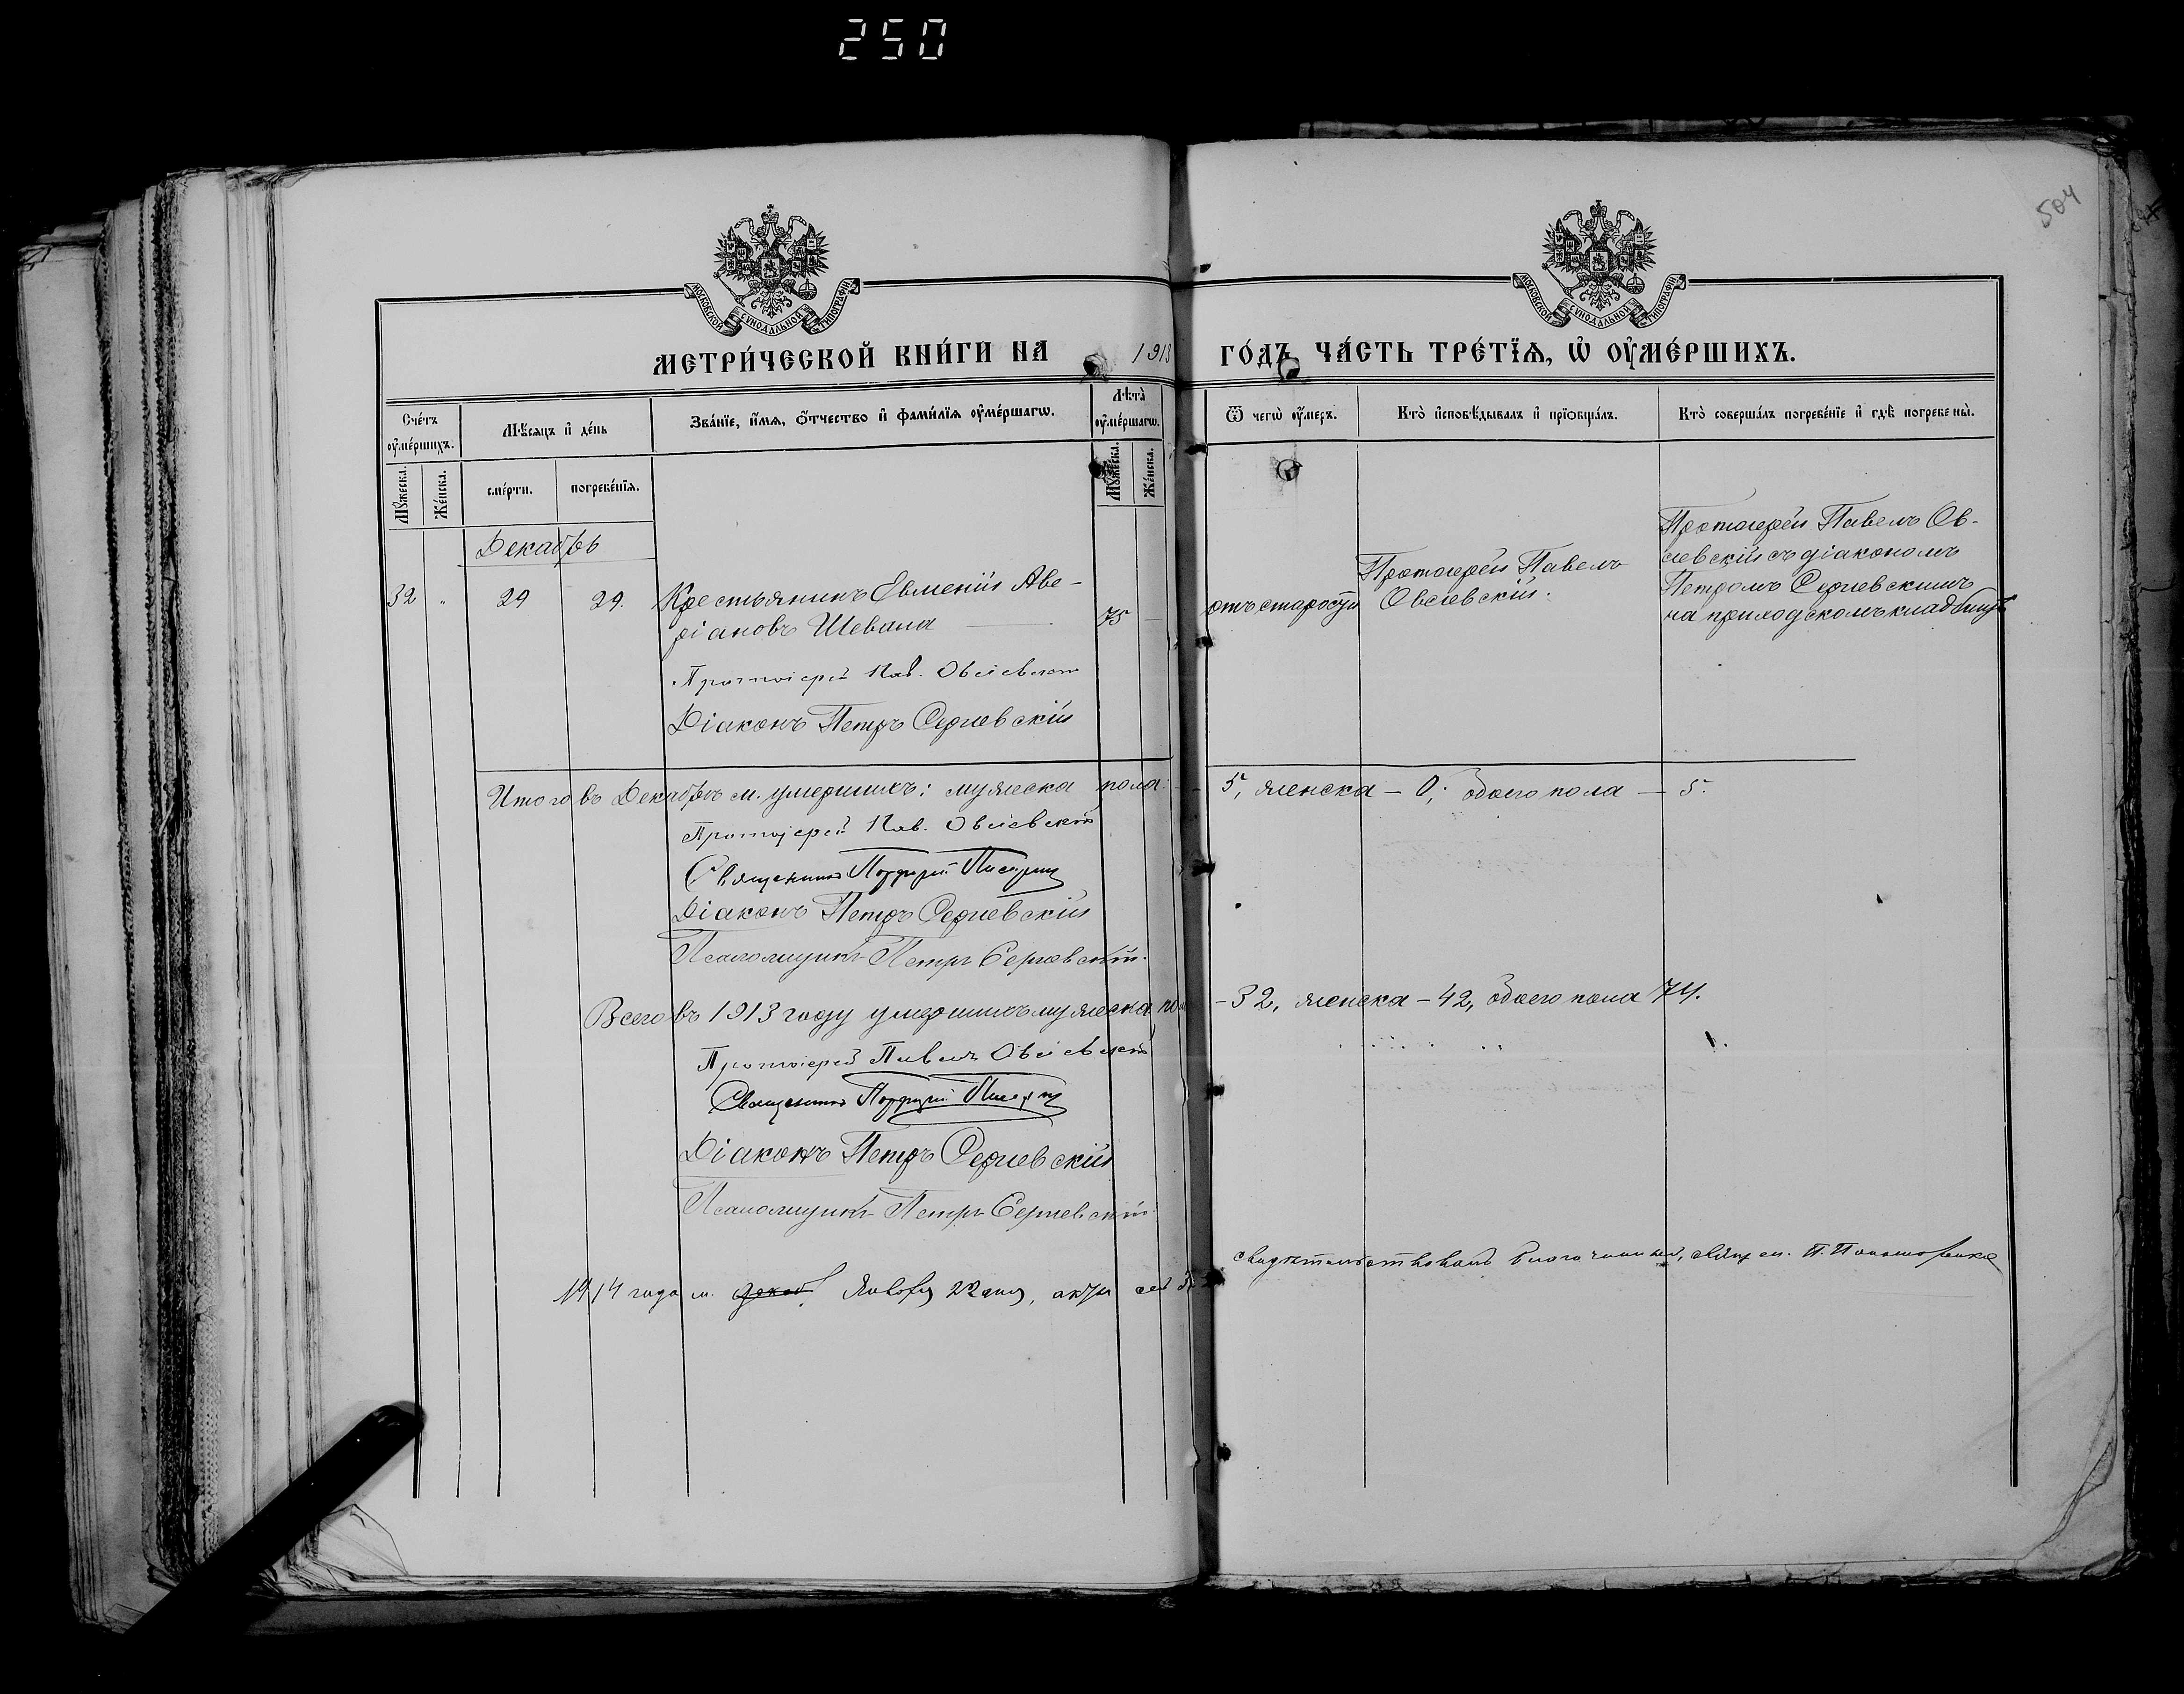 250
504
МОСКОВСКОЙ СѴНОДАЛЬНОЙ ТИПОГРАФІИ
МОСКОВСКОЙ СѴНОДАЛЬНОЙ ТИПОГРАФІИ
МЕТРИ́ЧЕСКОЙ КНИ́ГИ НА 1913 ГО́ДЪ, ЧА́СТЬ ТРЕ́ТЇѦ, Ѡ҆ ОУ҆МЕ́РШИХЪ.
Сче́тъ оу҆ме́ршихъ.
Мѣ́сяцъ и҆ де́нь
Зва́нїе, и҆́мѧ, ѻ҆́тчество и҆ фами́лїѧ оу҆ме́ршагѡ.
Лѣ́та оу҆ме́ршагѡ.
Ѿ чегѡ̀ оу҆́меръ.
Кто̀ и҆сповѣ́дывалъ и҆ прїѡбща́лъ.
Кто̀ соверша́лъ погребе́нїе и҆ гдѣ̀ погребены̀.
Мꙋ́жеска.
Же́нска.
сме́рти.
погребе́нїѧ.
Мꙋ́жеска.
Же́нска.
Декабрь
32 " 29 29. Крестьянинъ Евменій Аве-
ріановъ Шевала 75 —
отъ старости
Протоіерей Павелъ
Овсіевскій.
Протоіерей Павелъ Ов-
сіевскій съ діакономъ
Петромъ Сергіевскимъ
на приходскомъ кладбищѣ
Протоіерей Пав. Овсіевскій
Діаконъ Петръ Сергіевскій
Итого въ Декабрѣ м. умершихъ: мужеска пола: — 5, женска — 0; обоего пола — 5.
Протоіерей Пав. Овсіевскій
Священникъ Порфирій
Діаконъ Петръ Сергіевскій
Псаломщикъ Петръ Сергіевскій.
Всего въ 1913 году умершихъ мужеска пола — 32, женска — 42, обоего пола 74.
Протоіерей Павелъ Овсіевскій
Священникъ Порфирій
Діаконъ Петръ Сергіевскій
Псаломщикъ Петръ Сергіевскій.
1914 года м. Января 22 дня,
свидѣтельствовалъ благочинный, свящ.